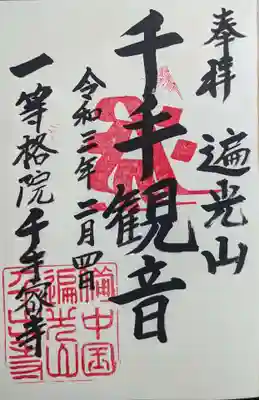 奉拝
遍光山
千手観音
令和三年二月四日
一等格院
備中国
遍光山